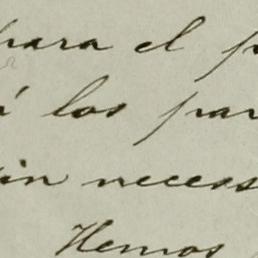 para el p
á los par
in neces
Hemos